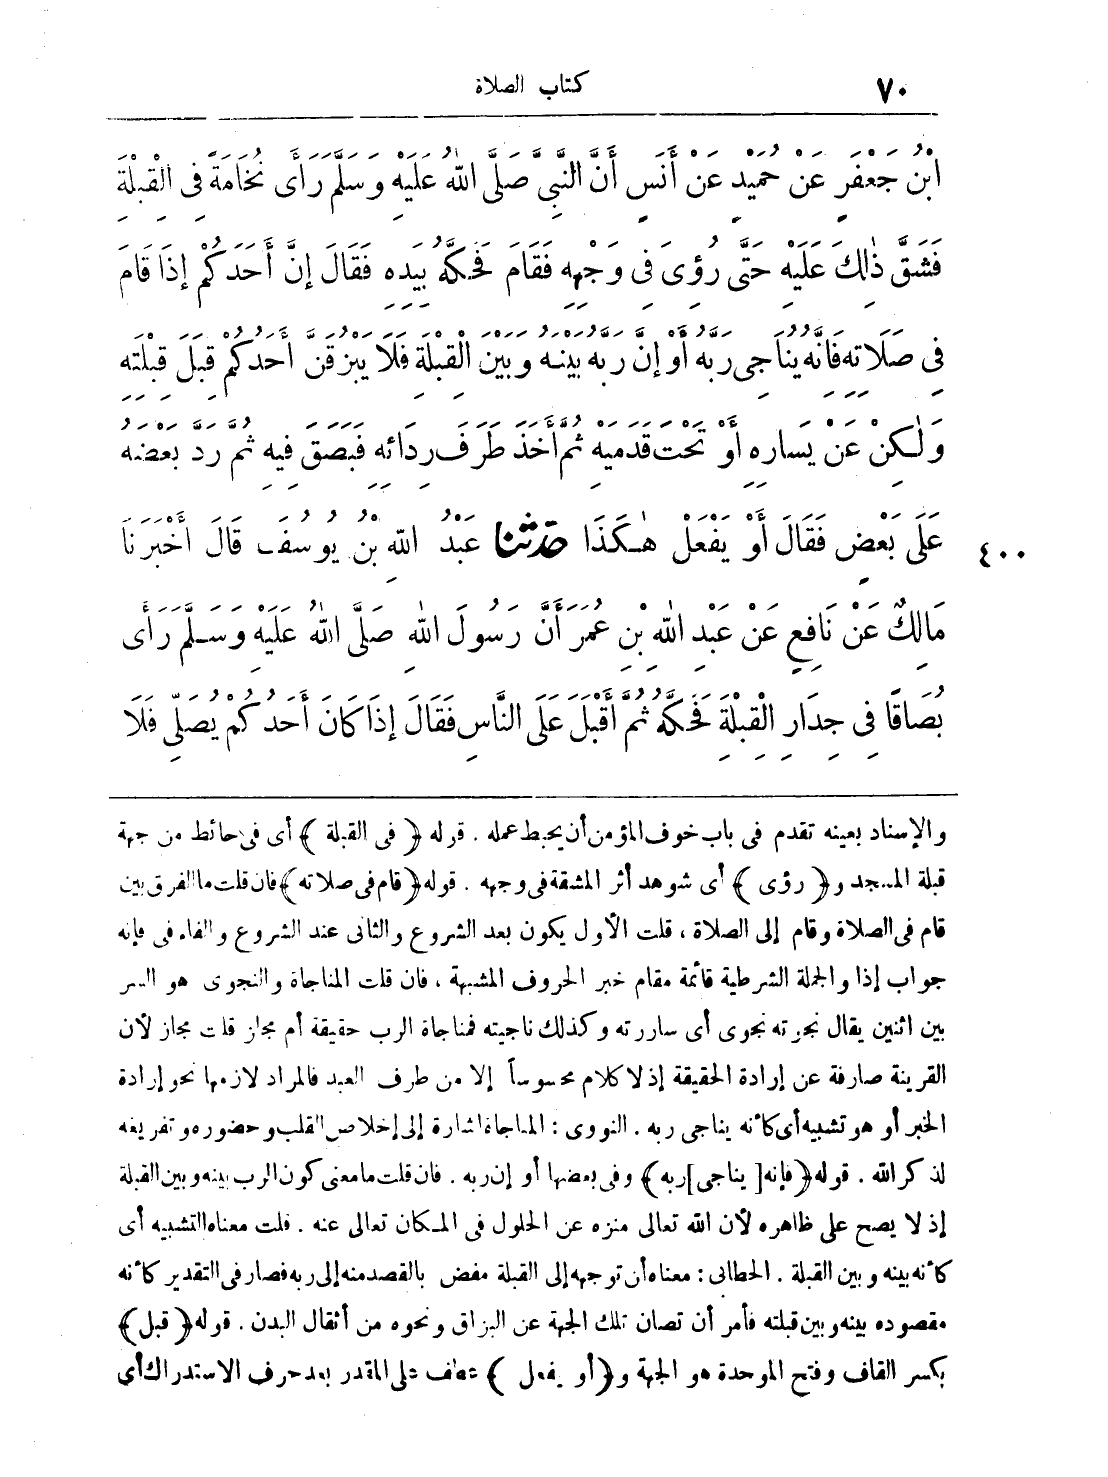 ٧٠ كتاب الصلاة
ابْنُ جَعْفَرٍ عَنْ حُمَيْدٍ عَنْ أَنَسٍ أَنَّ النَّبِيَّ صَلَّى اللهُ عَلَيْهِ وَسَلَّمَ رَأَى نُخَامَةً فِى الْقِبْلَةِ
فَشَقَّ ذٰلِكَ عَلَيْهِ حَتَّى رُؤِىَ فِى وَجْهِهِ فَقَامَ فَحَكَّهُ بِيَدِهِ فَقَالَ إِنَّ أَحَدَكُمْ إِذَا قَامَ
فِى صَلَاتِهِ فَإِنَّهُ يُنَاجِى رَبَّهُ أَوْ إِنَّ رَبَّهُ بَيْنَهُ وَبَيْنَ الْقِبْلَةِ فَلَا يَبْزُقَنَّ أَحَدُكُمْ قِبَلَ قِبْلَتِهِ
وَلٰكِنْ عَنْ يَسَارِهِ أَوْ تَحْتَ قَدَمَيْهِ ثُمَّ أَخَذَ طَرَفَ رِدَائِهِ فَبَصَقَ فِيهِ ثُمَّ رَدَّ بَعْضَهُ
عَلَى بَعْضٍ فَقَالَ أَوْ يَفْعَلْ هٰكَذَا حَدَّثَنَا عَبْدُ اللهِ بْنُ يُوسُفَ قَالَ أَخْبَرَنَا ٤٠٠
مَالِكٌ عَنْ نَافِعٍ عَنْ عَبْدِ اللهِ بْنِ عُمَرَ أَنَّ رَسُولَ اللهِ صَلَّى اللهُ عَلَيْهِ وَسَلَّمَ رَأَى
بُصَاقًا فِى جِدَارِ الْقِبْلَةِ فَحَكَّهُ ثُمَّ أَقْبَلَ عَلَى النَّاسِ فَقَالَ إِذَا كَانَ أَحَدُكُمْ يُصَلِّى فَلَا
والإسناد بعينه تقدم فى باب خوف المؤمن أن يحبط عمله . قوله ﴿ فى القبلة ﴾ أى فى حائط من جهة
قبلة المسجد و ﴿ رؤى ﴾ أى شوهد أثر المشقة فى وجهه . قوله ﴿ قام فى صلاته ﴾ فان قلت ما الفرق بين
قام فى الصلاة وقام إلى الصلاة ، قلت الأول يكون بعد الشروع والثانى عند الشروع والفاء فى فإنه
جواب إذا والجملة الشرطية قائمة مقام خبر الحروف المشبهة ، فان قلت المناجاة والنجوى هو السر
بين اثنين يقال نجوته نجوى أى ساررته وكذلك ناجيته فمناجاة الرب حقيقة أم مجاز قلت مجاز لأن
القرينة صارفة عن إرادة الحقيقة إذ لا كلام محسوساً إلا من طرف العبد فالمراد لازمها نحو إرادة
الخبر أو هو تشبيه أى كأنه يناجى ربه . النووى : المناجاة اشارة إلى إخلاص القلب وحضوره وتفريغه
لذكر الله . قوله ﴿ فإنه [ يناجى ] ربه ﴾ وفى بعضها أو إن ربه . فان قلت ما معنى كون الرب بينه وبين القبلة
إذ لا يصح على ظاهره لأن الله تعالى منزه عن الحلول فى المكان تعالى عنه . قلت معناه التشبيه أى
كأنه بينه وبين القبلة . الخطابى : معناه أن توجهه إلى القبلة مفض بالقصد منه إلى ربه فصار فى التقدير كأنه
مقصوده بينه وبين قبلته فأمر أن تصان تلك الجهة عن البزاق ونحوه من أثقال البدن . قوله ﴿ قبل ﴾
بكسر القاف وفتح الموحدة هو الجهة و ﴿ أو يفعل ﴾ عطف على المقدر بعد حرف الاستدراك أى